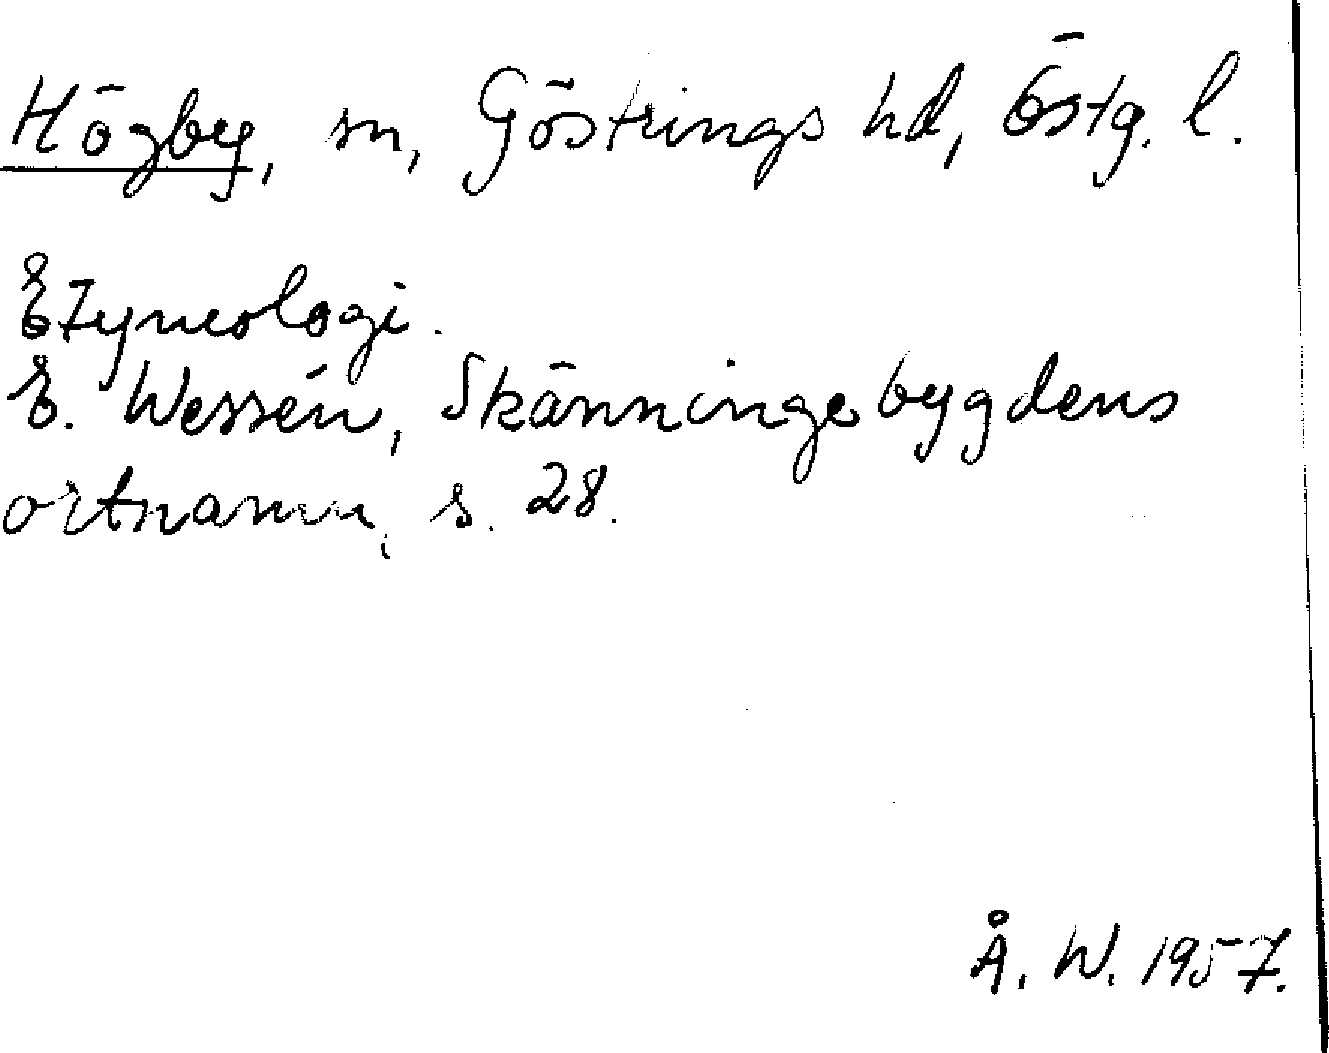 Högby, sn, Göstrings hd, Östg. l.
Etymologi.
E. Wessén, Skänningebygdens
ortnamn, s. 28.
Å. W. 1957.